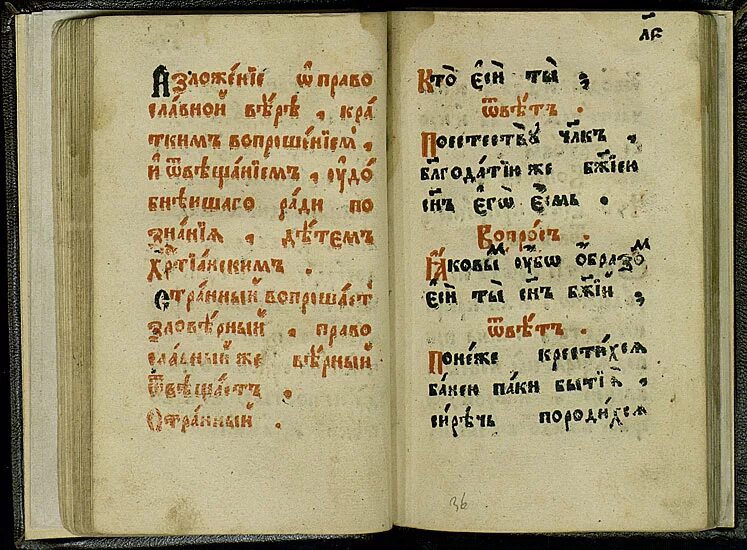 Изложе́нїе ѿ право
сла́вной вѣ́рѣ , кра́
ткимъ вопроше́нїем̾ ,
и҆ ѿвѣща́нїемъ , ᲂу҆до́
бнѣишаго ра́ди по
зна́нїѧ , дѣ́темъ
хрⷭ҇тїа́нскимъ .
Стра́нный вопроша́етъ
зловѣ́рный , право
сла́вный же вѣ́рный
ѿвѣща́етъ .
Стра́нный .
л҃ѕ
Кто̀ є҆сѝ ты̀ ;
ѿвѣ́тъ .
Поестеству̀ чл҃къ ,
бл҃года́тїю же бж҃їею
сн҃ъ є҆гѡ̀ є҆́смь .
Вопро́съ .
Ꙗ҆ковы́мъ ᲂу҆́бѡ ѡ҆́бразом
є҆сѝ ты̀ сн҃ъ бж҃їй ;
ѿвѣ́тъ .
Поне́же крести́хсѧ
ба́нею па́ки бытїѧ̀ ,
си́рѣчь породи́хсѧ
36